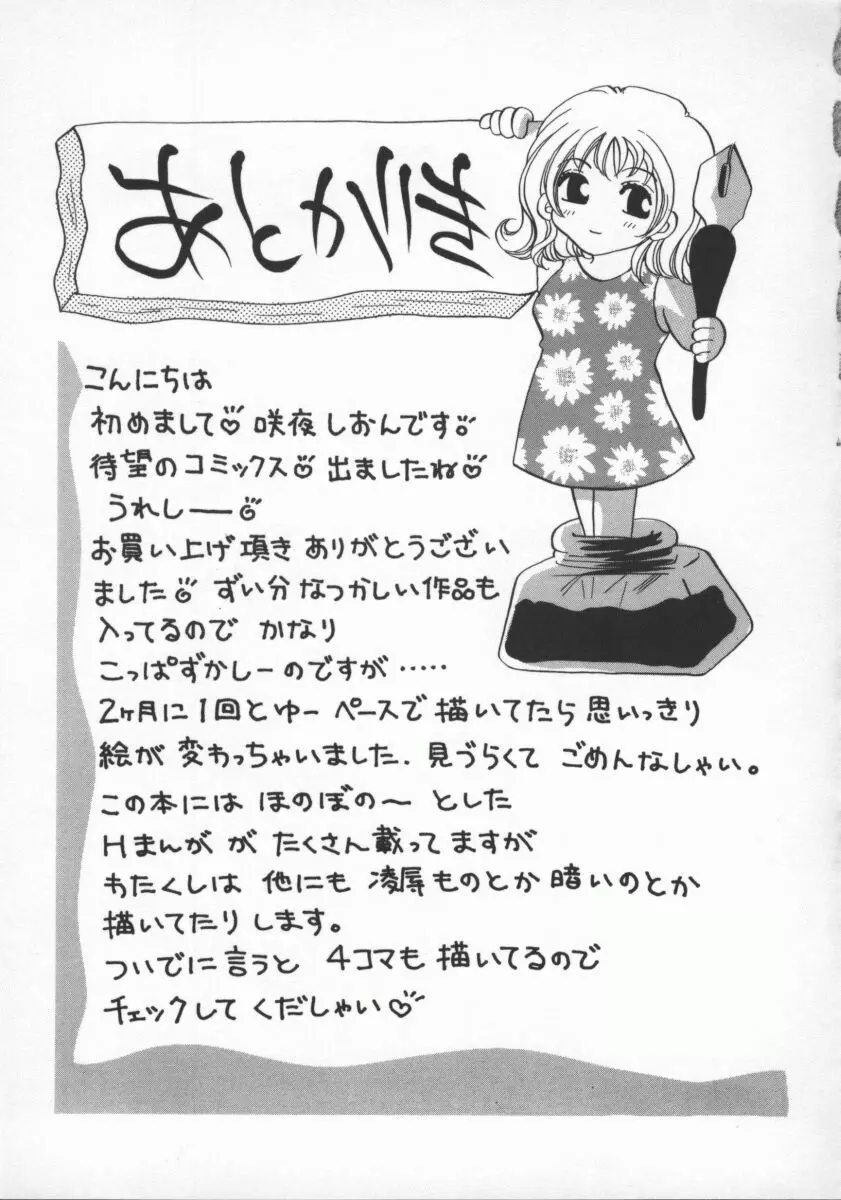 あとがき
こんにちは
初めまして♡ 咲夜 しおんです♡
待望の コミックス♡ 出ましたね♡
うれしー♡
お買い上げ頂き ありがとうござい
ました♡ ずい分 なつかしい作品も
入ってるので かなり
こっぱずかしーのですが ‥‥‥
2ヶ月に1回とゆー ペースで 描いてたら 思いっきり
絵が 変わっちゃいました. 見づらくて ごめんなしゃい。
この本には ほのぼの〜 とした
Hまんが が たくさん載ってますが
わたくしは 他にも 凌辱ものとか暗いのとか
描いてたりします。
ついでに言うと 4コマも 描いてるので
チェックして くだしゃい♡